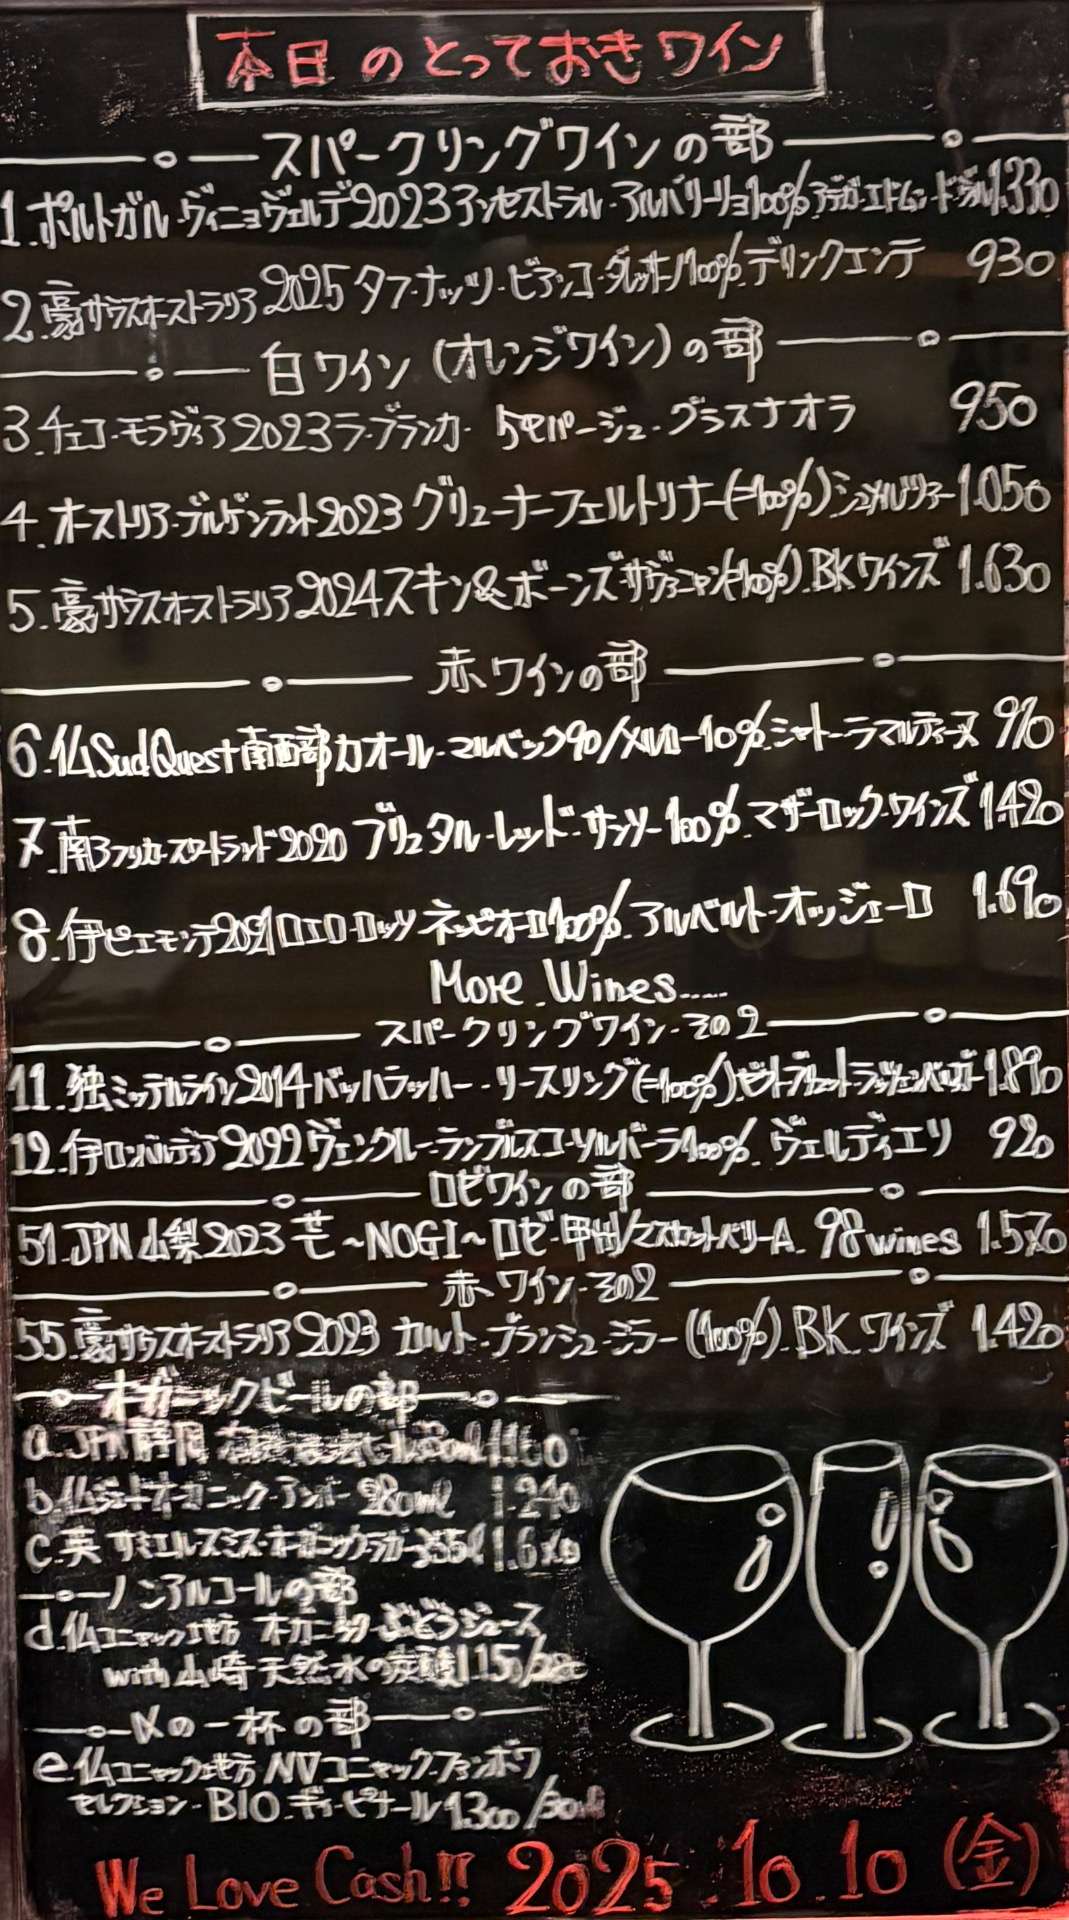 本日のとっておきワイン
スパークリングワインの部
1.ポルトガル・ヴィニョヴェルデ2023アンセストラル・アルバリーリョ100% アデガ・エドムンド・ヴァル 1.330
2.豪サウスオーストラリア2025タフ・ナッツ・ビアンコ・ダレッサーノ100%.デリンクエンテ 930
白ワイン(オレンジワイン)の部
3.チェコ・モラヴィア2023ラ・ブランカ・5セパージュ・グラスナオラ 950
4.オーストリア・ブルゲンラント2023グリューナーフェルトリナー(=100%)シュメルツァー 1.050
5.豪サウスオーストラリア2024スキン&ボーンズ・サヴァニャン(=100%).BKワインズ 1.630
赤ワインの部
6.仏SudQuest南西部カオール・マルベック90/メルロー10%.シャトーラマルティーヌ 970
7.南アフリカ・スワートランド2020ブリュタル・レッド・サンソー100%.マザーロック・ワインズ 1.420
8.伊ピエモンテ2021ロエロ・ロッソ ネッビオーロ100%.アルベルト・オッジェーロ 1.690
More Wines.....
スパークリングワイン・その2
11.独ミッテルライン2014バッハラッハー・リースリング(=100%).ゼクト ラッツェンベルガー 1.890
12.伊ロンバルディア2022ヴェンクルー・ランブルスコ・ソルバーラ100%.ヴェルディエリ 920
ロゼワインの部
51.JPN山梨2023芒~NOGI~ロゼ・甲州/マスカットベリーA.98wines 1.570
赤ワイン・その2
55.豪サウスオーストラリア2023カルト・ブランシュ・シラー(100%).BK.ワインズ 1.420
オガニックビールの部
a.JPN静岡 1.160
b.仏ジェードオーガニック・アンバー 280ml 1.210
c.英サミエルスミス・オーガニックラガー355ml 1.670
ノンアルコールの部
d.仏コニャック地方 オーガニックぶどうジュース
with山崎天然水の炭酸 1.150
〆の一杯の部
e.仏コニャック地方NVコニャック・ファンボワ
セレクション・BIO.ギィ・ピナール 1.300/30ml
We Love Cash!! 2025.10.10(金)